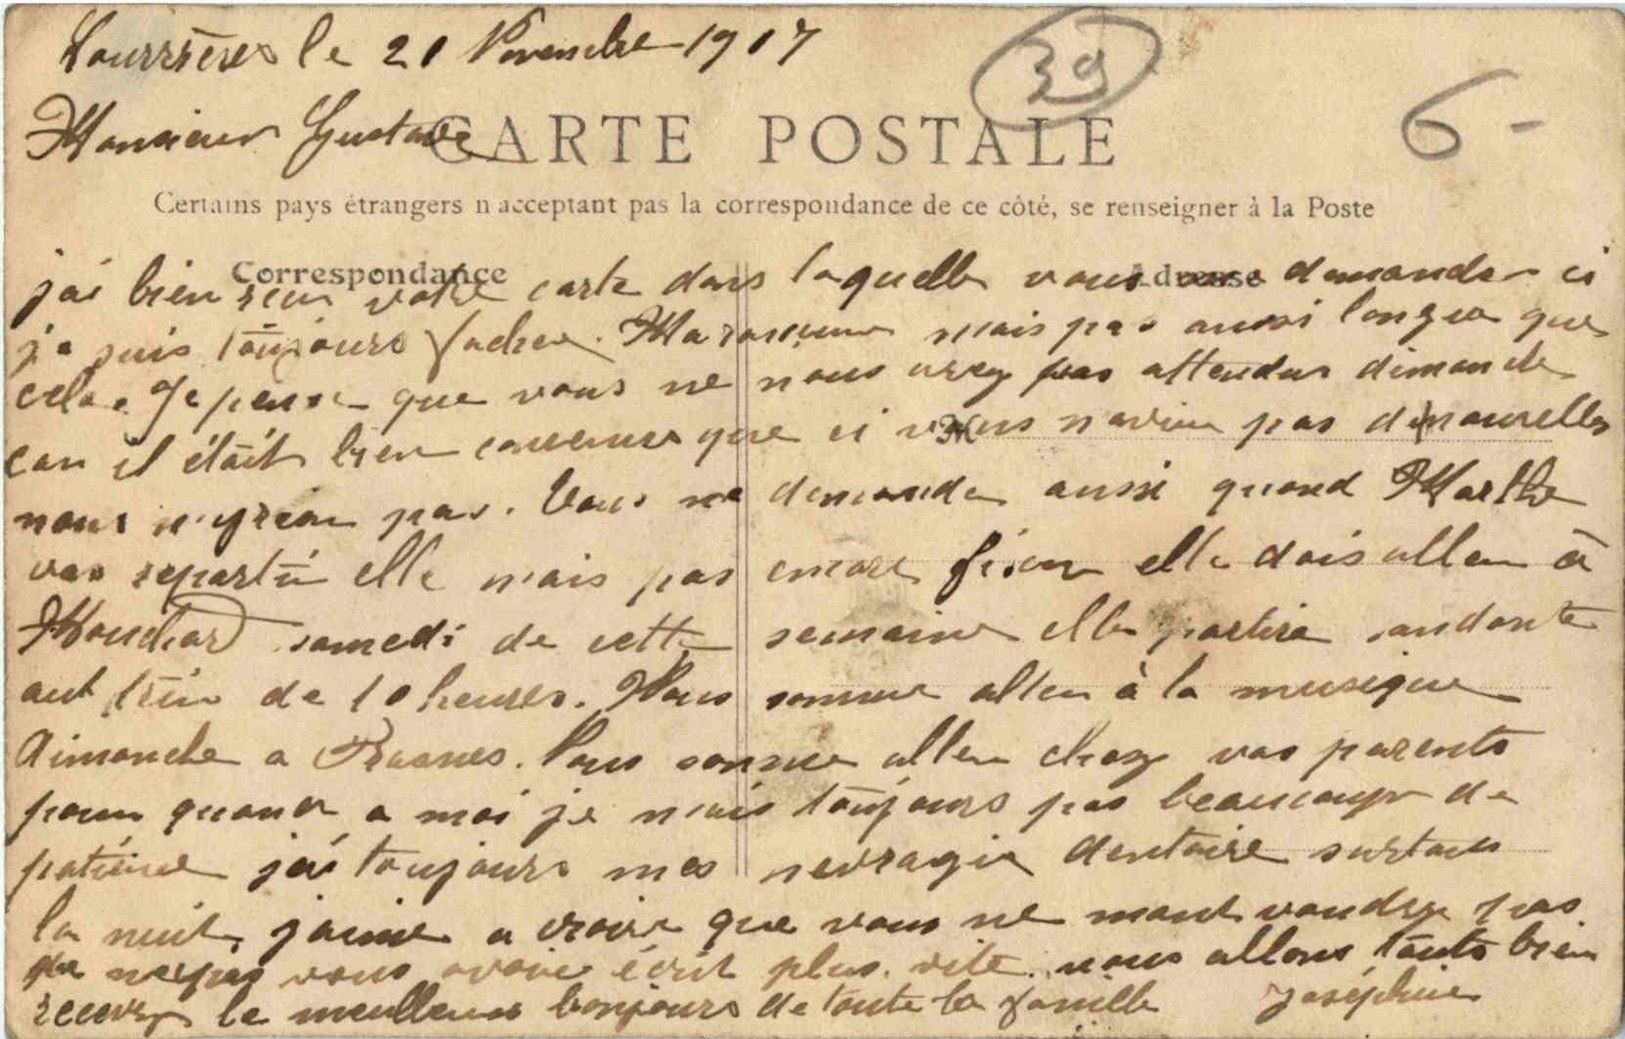 le 21 Novembre 1917
39
6-
Monsieur Gustave
CARTE POSTALE
Certains pays étrangers n'acceptant pas la correspondance de ce côté, se renseigner à la Poste
Correspondance
Adresse
j'ai bien reçu votre carte dans laquelle vous demander ci
je suis toujours facher. mais pas aussi longue que
cela. Je pense que vous ne nous avez pas attendus dimanche
car il était bien convenue que ci vous n'avien pas de nouvelles
nous n'yrion pas. Vous me demander aussi quand Marthe
vas repartir elle mais pas encore elle dois aller à
Mouchard samedi de cette semaine elle partira
aut train de 10 heures. Nous somme aller à la musique
dimanche a Rasnes. Nous somme aller chez vos parents
pour quand a moi je mais toujours pas beaucoup de
patience j'ai toujours mes nevragie dentaire surtout
la nuit, j'aime a croire que vous ne mant voudrez pas
de ne pas vous avoir écrit plus vite. nous allons touts bien
recevez le meulleur bonjours de toute la famille Joséphine